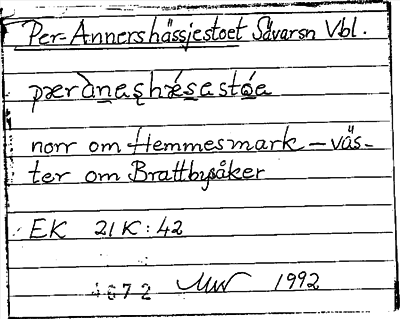 Per-Annershässjestoet Sävarsn Vbl.
pæràneṣhǽsestǿe
norr om Hemmesmark – väs-
ter om Brattbysåker
EK 21 K : 42
4672 1992